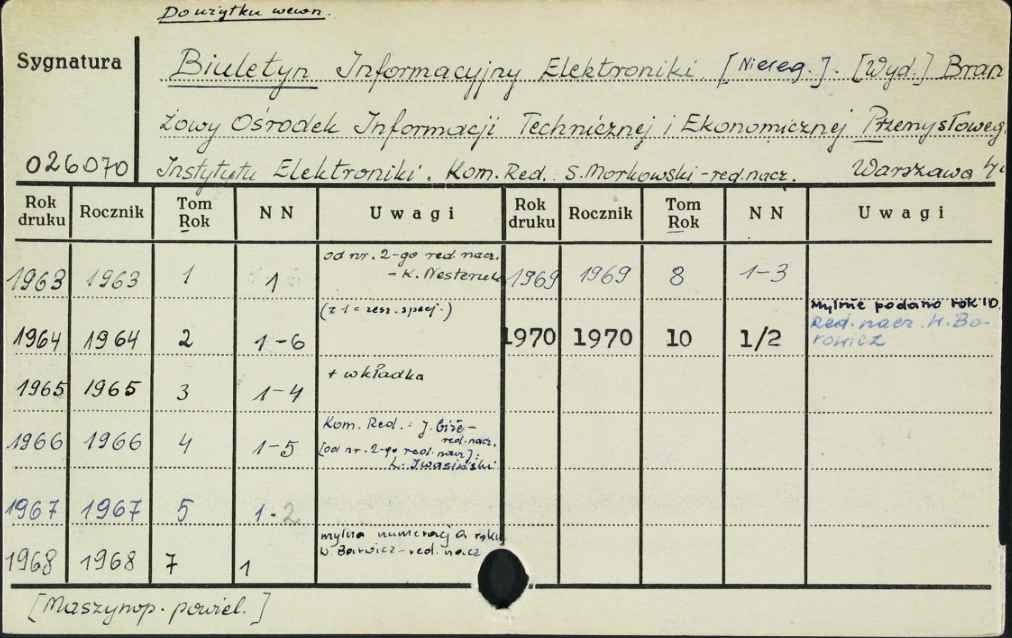 Do użytku wewn.
Sygnatura
Biuletyn Informacyjny Elektroniki. [Niereg.]. [Wyd.] Bran
żowy Ośrodek Informacji Technicznej i Ekonomicznej Przemysłoweg.
026070 Instytutu Elektroniki. Kom. Red.: S. Morkowski - red. nacz. Warszawa
Rok druku Rocznik Tom Rok NN Uwagi Rok druku Rocznik Tom Rok NN Uwagi
od nr. 2-go red. nacz.
1963 1963 1 1 - K. Nesteruk 1969 1969 8 1-3
(z 1 = zesz. specj.) Mylnie podano rok 10
1964 1964 2 1-6 1970 1970 10 1/2 Red. nacz. H. Bo-
rowicz
+ wkładka
1965 1965 3 1-4
Kom. Red.:
red. nacz.
1966 1966 4 1-5 [od nr. 2-go red. nacz]:
Ł. Iwasiński
1967 1967 5 1-2
mylna numeracja roku
W Borwicz - red. nacz
1968 1968 7 1
[Maszynop. powiel.]